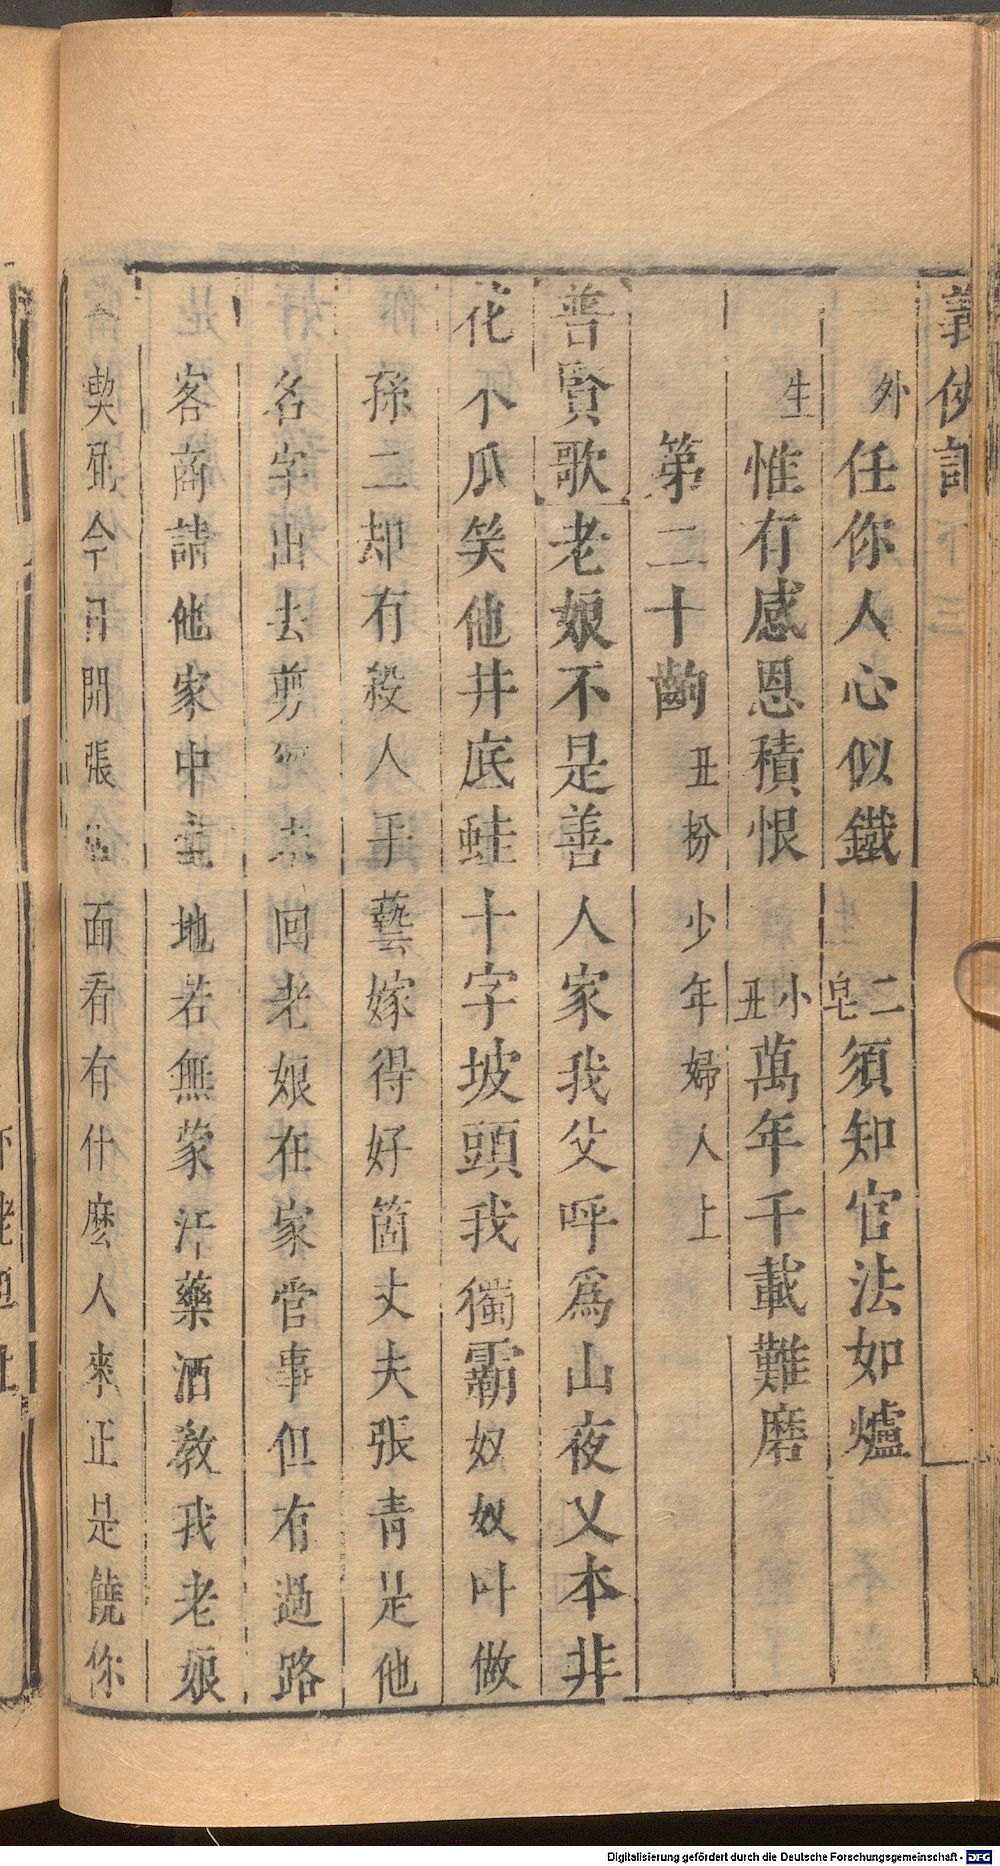 義俠記
外任你人心似鐵 二皂須知官法如爐
生惟有感恩積恨 小丑萬年千載難磨
第二十齣 丑扮少年婦人上
普賢歌老娘不是善人家我父呼爲山夜叉本非
花木瓜笑他井底蛙十字坡頭我獨霸奴奴叫做
孫二却有殺人手藝嫁得好箇丈夫張青是他
名字出去剪 未回老娘在家管事但有過路
客商請他家中 地若無蒙汗藥酒教我老娘
今日開張 面看有什麼人來正是饒你
Digitalisierung gefördert durch die Deutsche Forschungsgemeinschaft - DFG